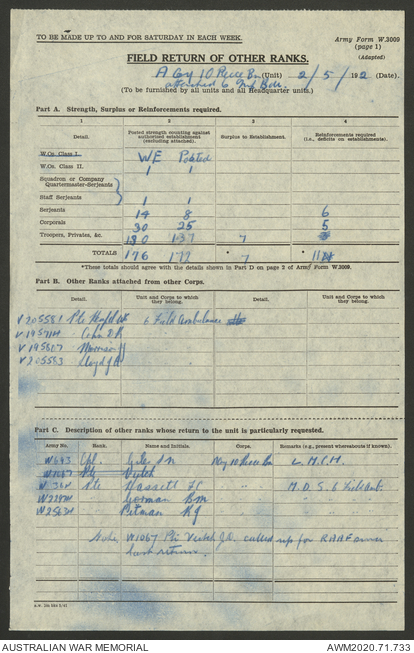 TO BE MADE UP TO AND FOR SATURDAY IN EACH WEEK.
Army Form W.3009
(page 1)
(Adapted)
FIELD RETURN OF OTHER RANKS.
A Coy 10 Recce Bn (Unit) 2/5/192 (Date).
attached 6
(To be furnished by all units and all Headquarter units.)
Part A. Strength, Surplus or Reinforcements required.
1 2 3 4
Detail. Posted strength counting against authorized establishment (excluding attached). Surplus to Establishment. Reinforcements required (i.e., deficits on establishments).
W.Os. Class I. WE Posted
W.Os. Class II. 1 1
Squadron or Company Quartermaster-Serjeants
Staff Serjeants 1 1
Serjeants 14 8 6
Corporals 30 25 5
Troopers, Privates, &c. 130 137 7
TOTALS 176 172 7 11
*These totals should agree with the details shown in Part D on page 2 of Army Form W.3009.
Part B. Other Ranks attached from other Corps.
Detail. Unit and Corps to which they belong. Detail. Unit and Corps to which they belong.
V205581 Pte 6 Field Ambulance
V19571
V195807 Morrison
V205583 Lloyd
Part C. Description of other ranks whose return to the unit is particularly requested.
Army No. Rank. Name and Initials. Corps. Remarks (e.g., present whereabouts if known).
W643 Cpl. Giles 10 Recce Bn L.M.C.H.
W1067 Pte Veitch
W Pte Hassett M.D.S. 6 Field Amb.
Gorman B M
Pitman R J
Note W1067 Pte Veitch J.D. called up for RAAF since
last return.
AUSTRALIAN WAR MEMORIAL AWM2020.71.733